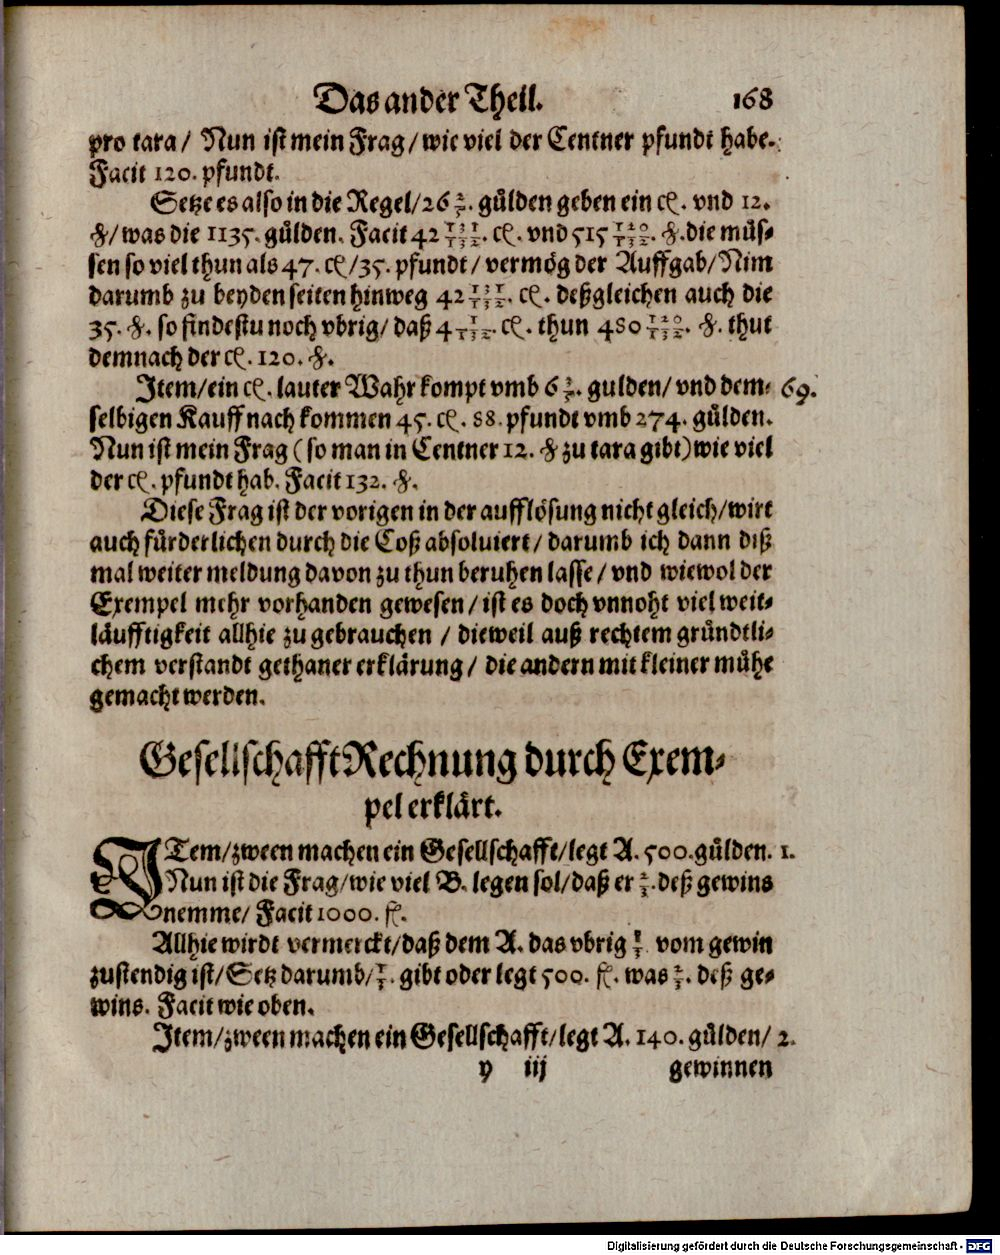 Das ander Theil. 168
pro tara / Nun ist mein Frag / wie viel der Centner pfundt habe.
Facit 120. pfundt.
Setze es also in die Regel / 26 2/5. gülden geben ein cl. vnd 12.
℔ / was die 1135. gülden. Facit 42 131/132. cl. vnd 515 120/132. ℔. die müs-
sen so viel thun als 47. cl / 35. pfundt / vermög der Auffgab / Nim
darumb zu beyden seiten hinweg 42 131/132. cl. deßgleichen auch die
35. ℔. so findestu noch vbrig / daß 4 1/132. cl. thun 480 120/132. ℔. thut
demnach der cl. 120. ℔.
Item / ein cl. lauter Wahr kompt vmb 6 3/5. gulden / vnd dem- 69.
selbigen Kauff nach kommen 45. cl. 88. pfundt vmb 274. gülden.
Nun ist mein Frag ( so man in Centner 12. ℔ zu tara gibt) wie viel
der cl. pfundt hab. Facit 132. ℔.
Diese Frag ist der vorigen in der aufflösung nicht gleich / wirt
auch fürderlichen durch die Coß absoluiert / darumb ich dann diß
mal weiter meldung davon zu thun beruhen lasse / vnd wiewol der
Exempel mehr vorhanden gewesen / ist es doch vnnoht viel weit-
läufftigkeit allhie zu gebrauchen / dieweil auß rechtem gründtli-
chem verstandt gethaner erklärung / die andern mit kleiner mühe
gemacht werden.
Gesellschafft Rechnung durch Exem-
pel erklärt.
ITem / zween machen ein Gesellschafft / legt A. 500. gülden. 1.
Nun ist die Frag / wie viel B. legen sol / daß er 2/3. deß gewins
nemme / Facit 1000. fl.
Allhie wirdt vermerckt / daß dem A. das vbrig 1/3 vom gewin
zustendig ist / Setz darumb / 1/3. gibt oder legt 500. fl. was 2/3. deß ge-
wins. Facit wie oben.
Item / zween machen ein Gesellschafft / legt A. 140. gülden / 2.
y iij gewinnen
Digitalisierung gefördert durch die Deutsche Forschungsgemeinschaft - DFG